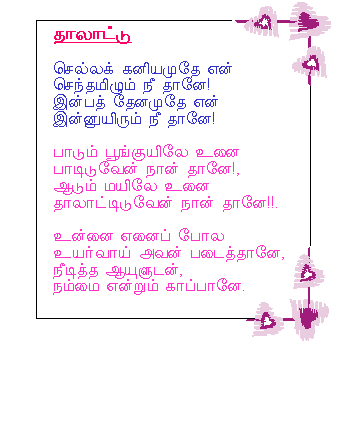 தாலாட்டு
செல்லக் கனியமுதே என்
செந்தமிழும் நீ தானே!
இன்பத் தேனமுதே என்
இன்னுயிரும் நீ தானே!
பாடும் பூங்குயிலே உனை
பாடிடுவேன் நான் தானே!,
ஆடும் மயிலே உனை
தாலாட்டிடுவேன் நான் தானே!!.
உன்னை எனைப் போல
உயர்வாய் அவன் படைத்தானே,
நீடித்த ஆயுளுடன்,
நம்மை என்றும் காப்பானே.